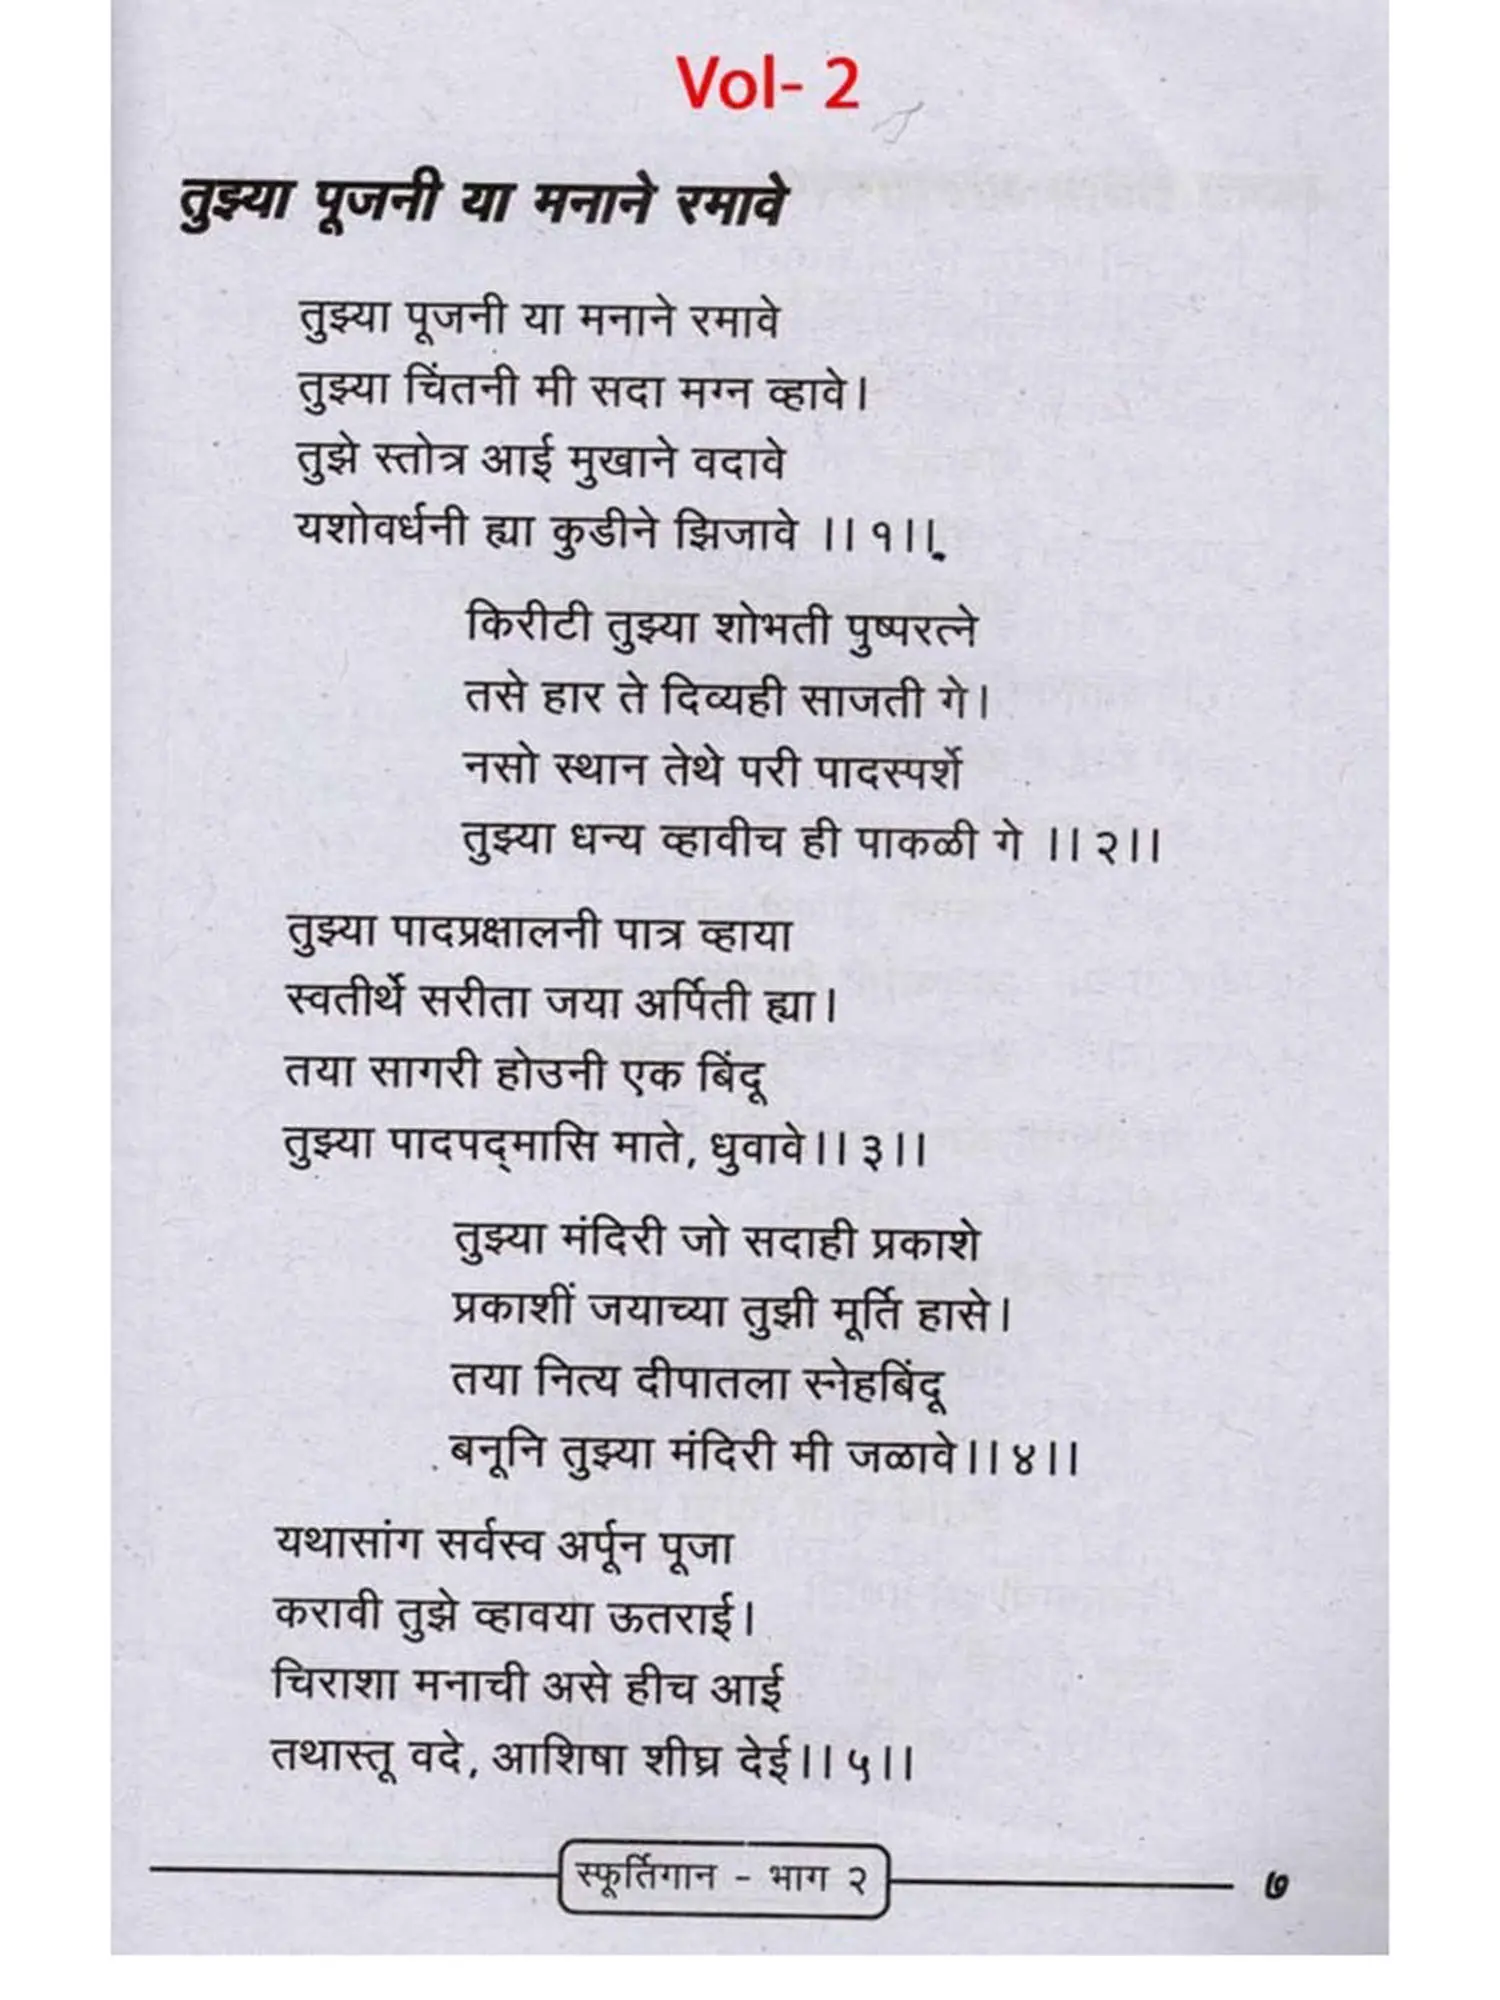 Vol- 2
तुझ्या पूजनी या मनाने रमावे
तुझ्या पूजनी या मनाने रमावे
तुझ्या चिंतनी मी सदा मग्न व्हावे।
तुझे स्तोत्र आई मुखाने वदावे
यशोवर्धनी ह्या कुडीने झिजावे ।।१।।
किरीटी तुझ्या शोभती पुष्परत्ने
तसे हार ते दिव्यही साजती गे।
नसो स्थान तेथे परी पादस्पर्शे
तुझ्या धन्य व्हावीच ही पाकळी गे ।।२।।
तुझ्या पादप्रक्षालनी पात्र व्हाया
स्वतीर्थे सरीता जया अर्पिती ह्या।
तया सागरी होउनी एक बिंदू
तुझ्या पादपद्‌मासि माते, धुवावे।।३।।
तुझ्या मंदिरी जो सदाही प्रकाशे
प्रकाशीं जयाच्या तुझी मूर्ति हासे।
तया नित्य दीपातला स्नेहबिंदू
बनूनि तुझ्या मंदिरी मी जळावे।।४।।
यथासांग सर्वस्व अर्पून पूजा
करावी तुझे व्हावया ऊतराई।
चिराशा मनाची असे हीच आई
तथास्तू वदे, आशिषा शीघ्र देई।।५।।
स्फूर्तिगान - भाग २
७